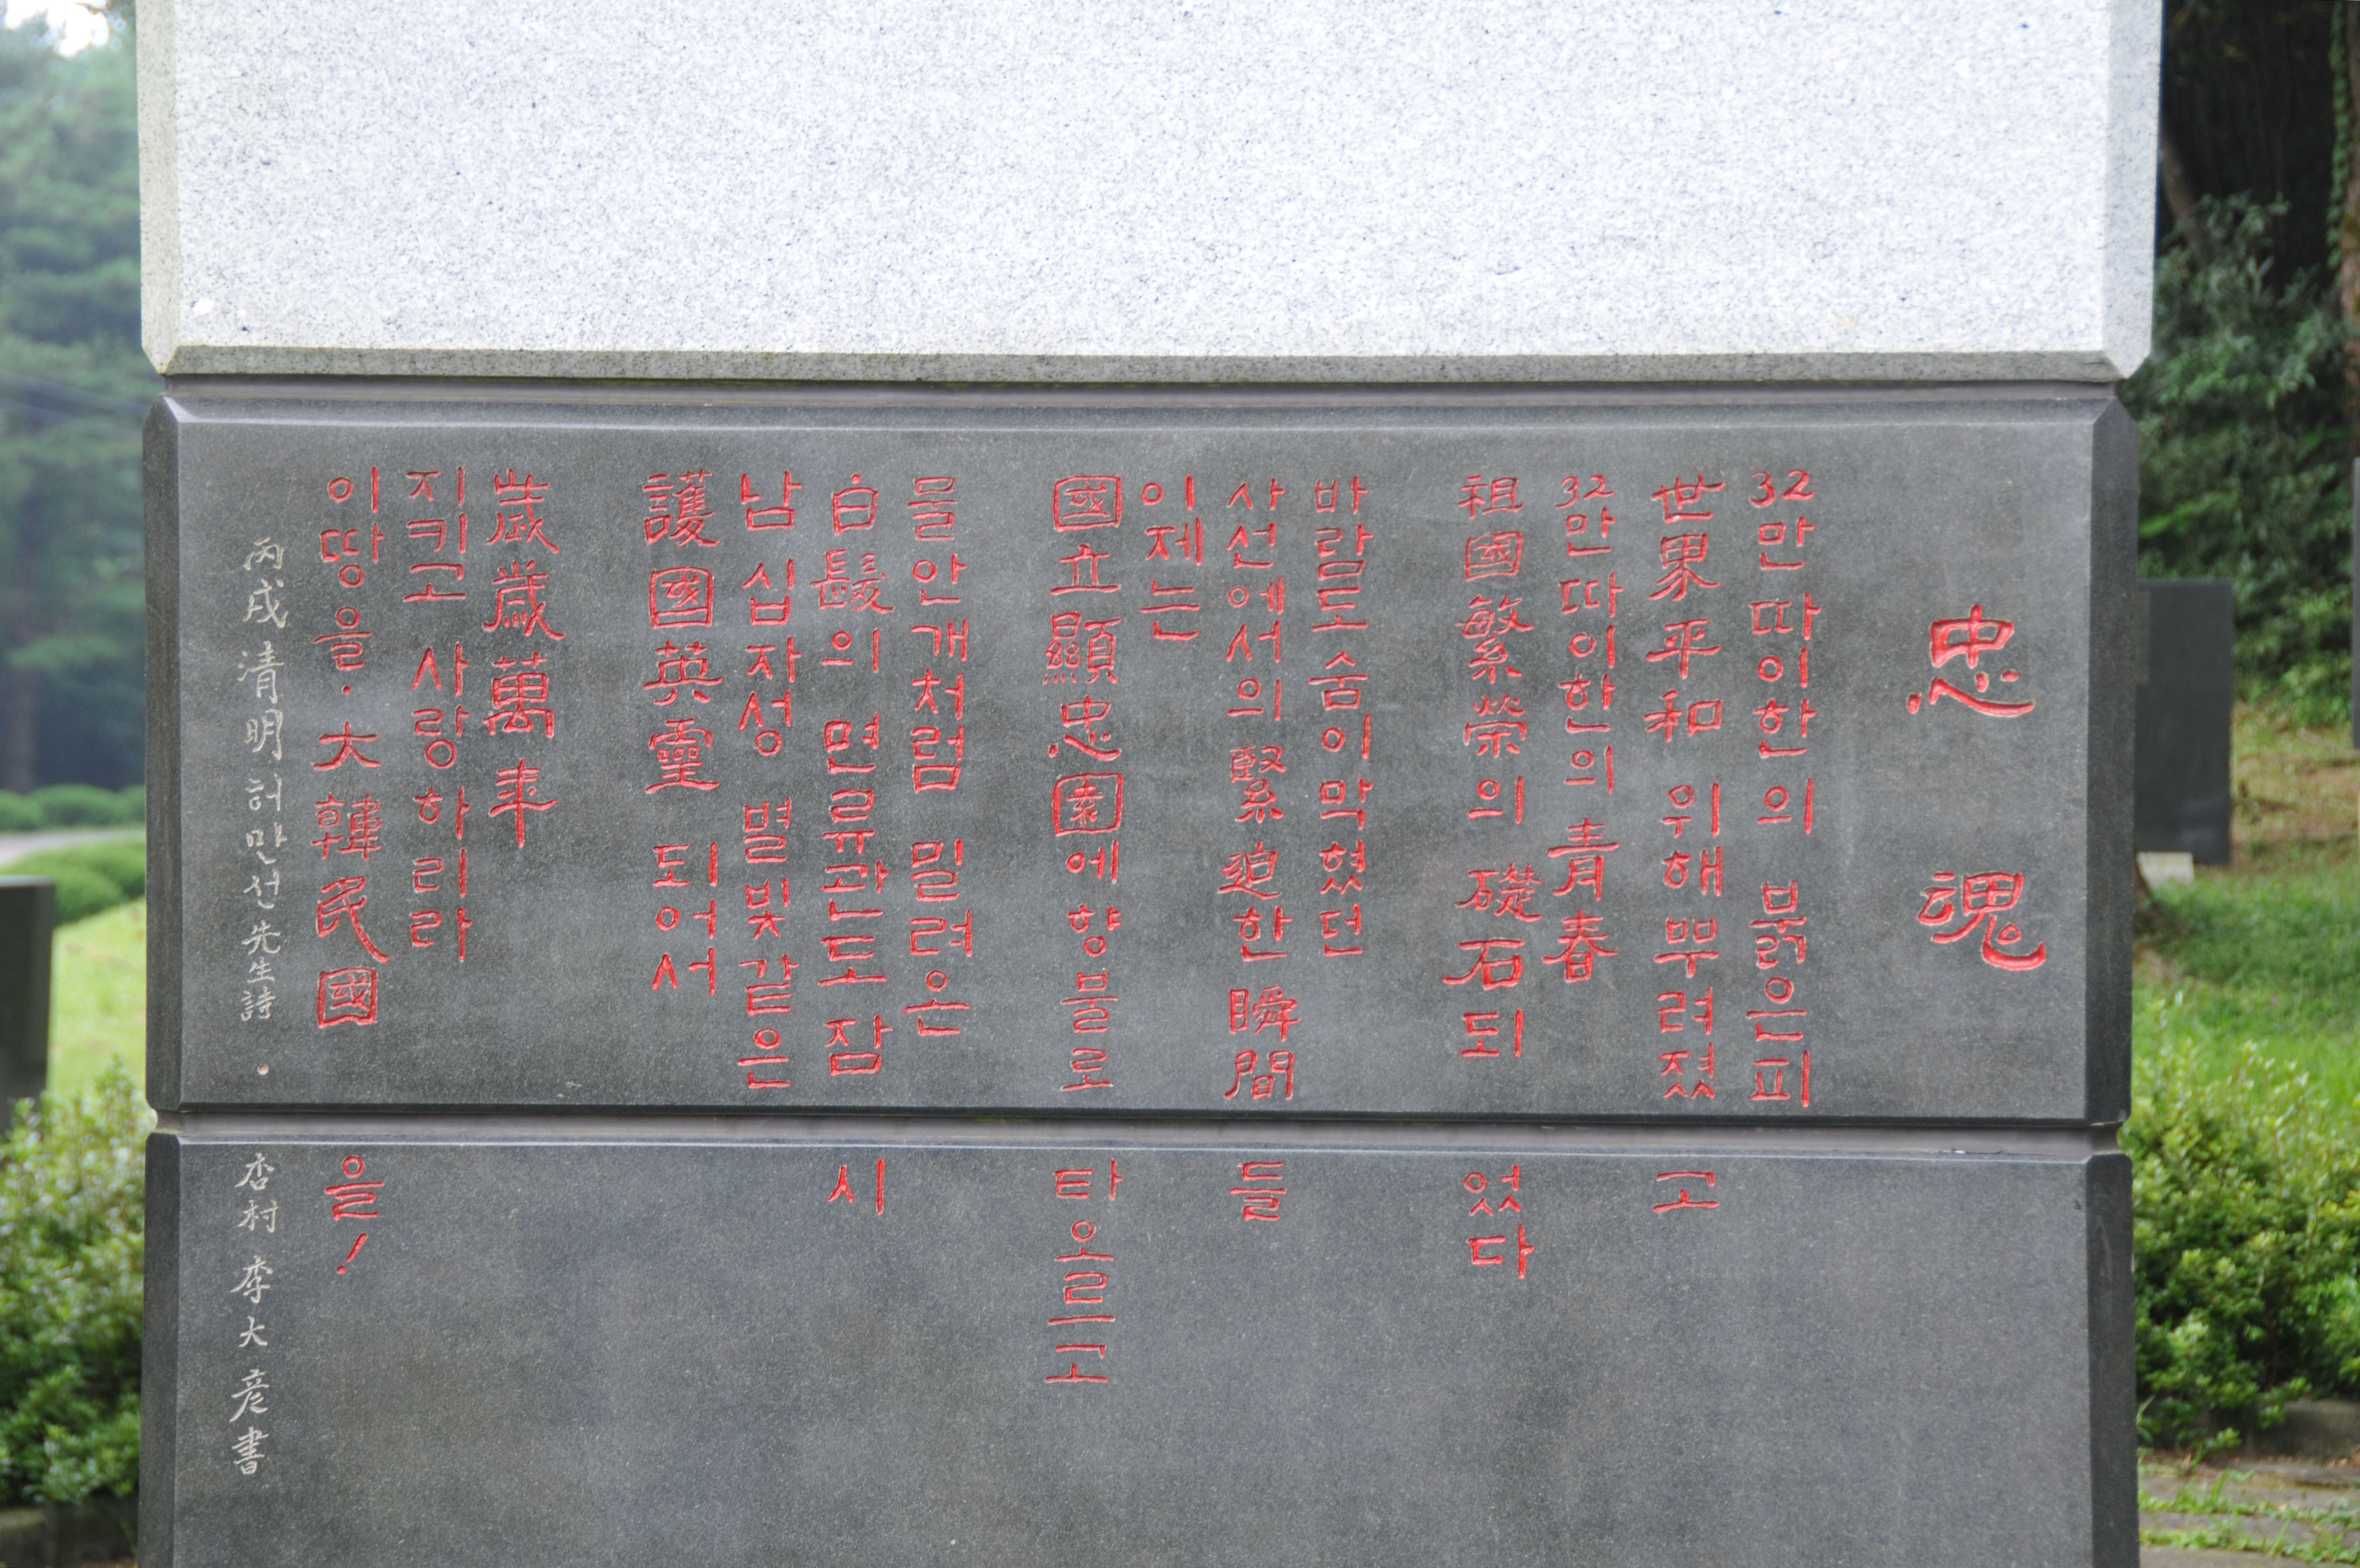 忠魂
32만 따이한의 붉은피
世界平和 위해 뿌려졌고
32만 따이한의 青春
祖國繁榮의 礎石되었다
바람도 숨이 막혔던
사선에서의 緊迫한 瞬間들
이제는
國立顯忠園에 향불로 타올르고
물안개처럼 밀려온
白髮의 면류관도 잠시
남십자성 별빛같은
護國英靈 되어서
歲歲萬年
지키고 사랑하리라
이땅을·大韓民國을!
丙戌 清明 허만선 先生詩·杏村 李大彦書